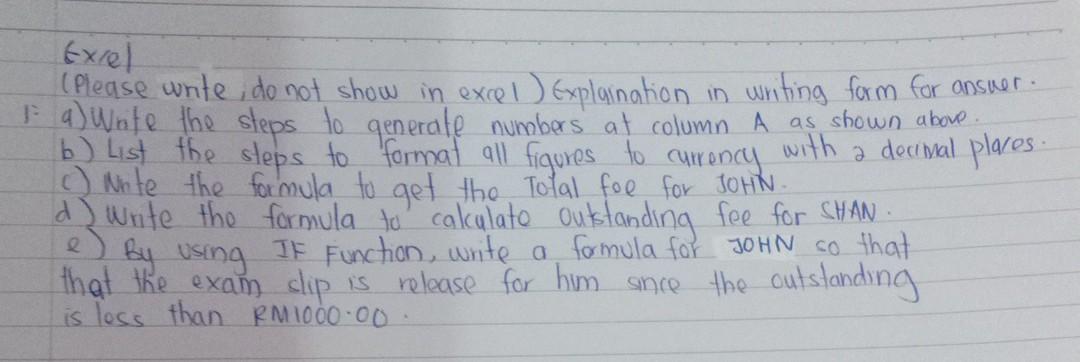 Excel
(Please write, do not show in excel) Explaination in writing form for answer.
1: a) Write the steps to generate numbers at column A as shown above.
b) List the steps to format all figures to currency with 2 decimal places.
c) Write the formula to get the Total fee for JOHN.
d) Write the formula to calculate outstanding fee for SHAN.
e) By using IF Function, write a formula for JOHN so that
that the exam slip is release for him since the outstanding
is less than RM1000.00.